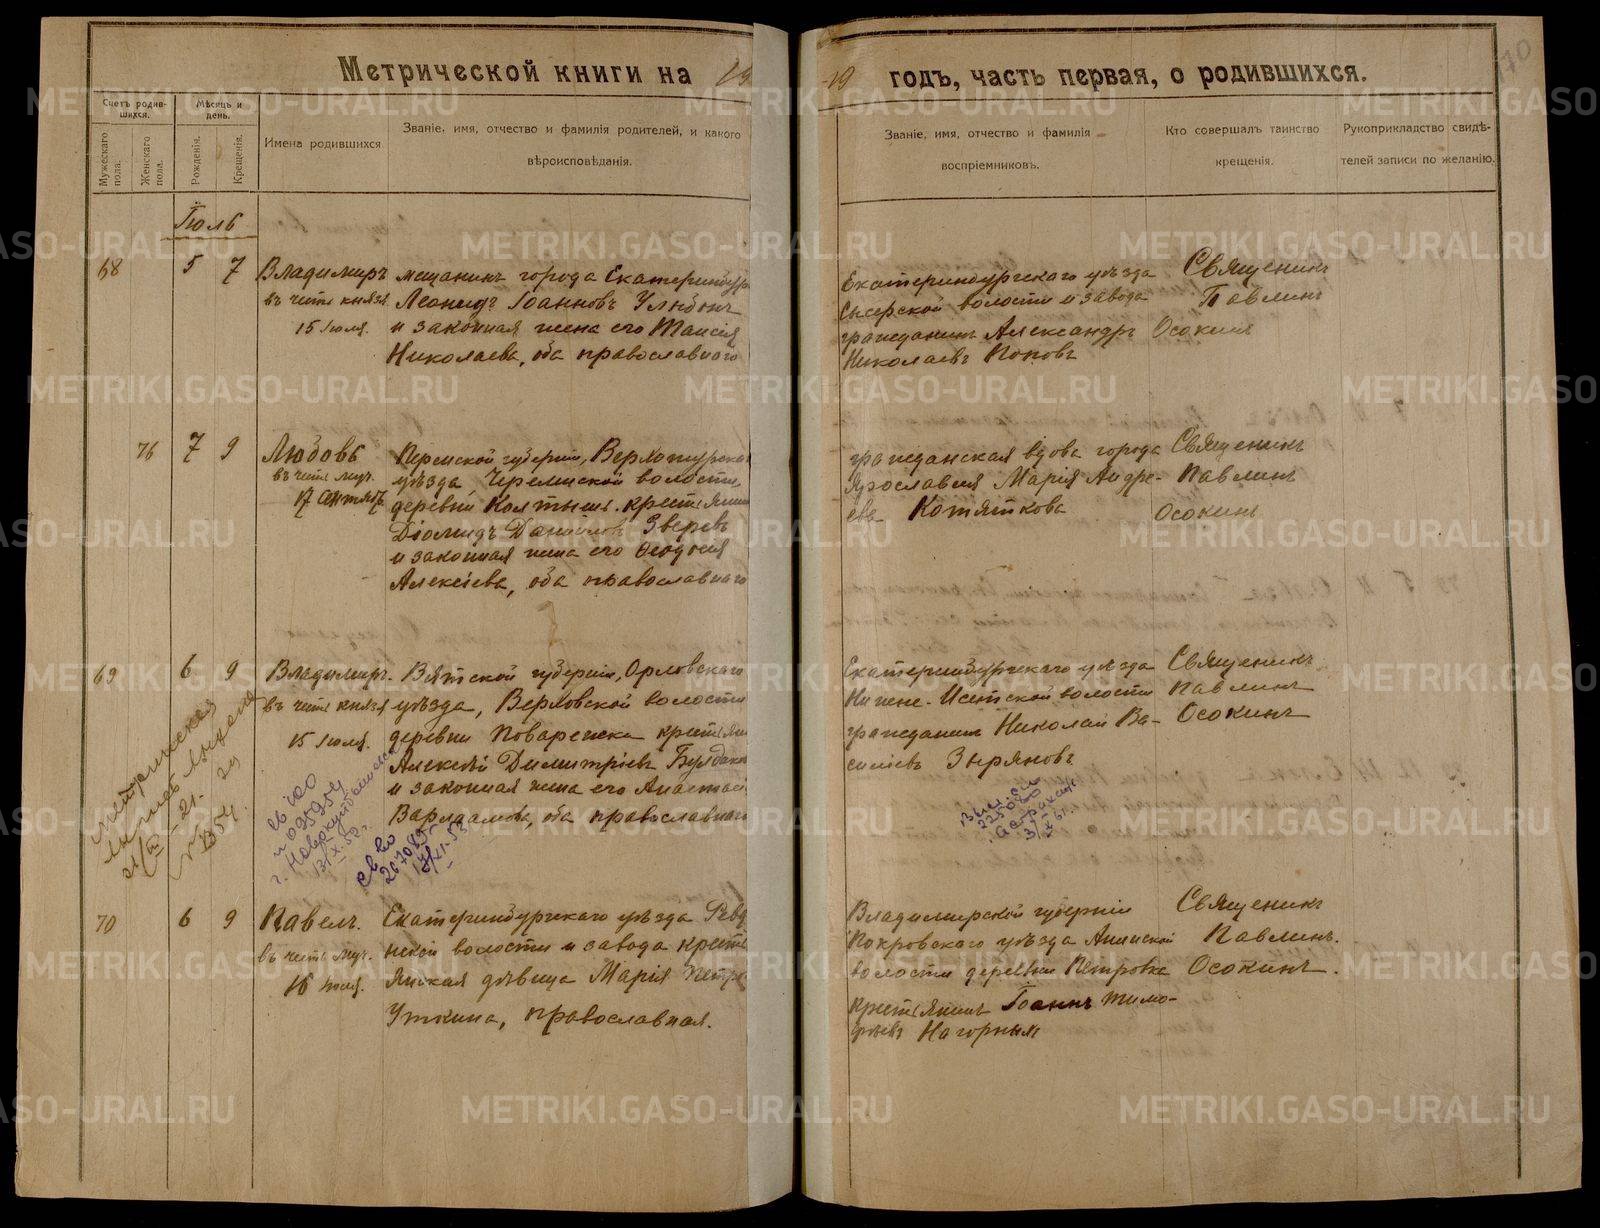 Метрической книги на 19
19 годъ, часть первая, о родившихся.
170
Счетъ родив-
шихся.
Мѣсяцъ и
день.
Мужескаго
пола.
Женскаго
пола.
Рожденія.
Крещенія.
Имена родившихся
Званіе, имя, отчество и фамилія родителей, и какого
вѣроисповѣданія.
Званіе, имя, отчество и фамилія
воспріемниковъ.
Кто совершалъ таинство
крещенія.
Рукоприкладство свидѣ-
телей записи по желанію.
Іюль
68 5 7 Владимиръ
въ честь князя
15 Іюля.
мещанинъ города Екатеринбур
Леонидъ Іоанновъ
и законная жена его Таисія
Николаева, оба православнаго
Екатеринбургскаго уѣзда
Сысерской волости и завода
гражданинъ Александръ
Николаевъ Поповъ
Священникъ
Павлинъ
Осокинъ
76 7 9 Любовь
въ честь муч.
17 Сентябр
Пермской губерніи, Верхотурска
уѣзда волости,
деревни крестьянин
Діомидъ Даніиловъ Звѣревъ
и законная жена его Ѳеодосія
Алексіева, оба православнаго
гражданская вдова города
Ярославля Марія Андре-
ева Котяткова
Священникъ
Павлинъ
Осокинъ
69 6 9 Владимиръ.
въ честь князя
15 Іюля.
Вятской губерніи, Орловскаго
уѣзда, Верховской волости
деревни крестьян
Алексѣй Димитріевъ Булдако
и законная жена его Анастасі
Варлаамова, оба православнаго
Екатеринбургскаго уѣзда
Нижне-Исетской волости
гражданинъ Николай Ва-
силіевъ Зыряновъ
Священникъ
Павлинъ
Осокинъ
70 6 9 Павелъ.
въ честь муч.
16 Іюля.
Екатеринбургскаго уѣзда Ревд
нской волости и завода кресть
янская дѣвица Марія Петро
Уткина, православная.
Владимирской губерніи
Покровскаго уѣзда Аннинской
волости деревни Петровка
крестьянинъ Іоаннъ Тимо-
ѳеевъ Нагорный
Священникъ
Павлинъ.
Осокинъ.
METRIKI.GASO-URAL.RU